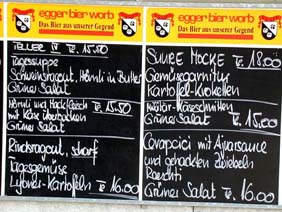 egger bier worb
Das Bier aus unserer Gegend
TELLER IV Fr. 15.50
Tagessuppe
Schweinsragout, Hörnli in Butter
Grüner Salat
Hörnli und Hackfleisch Fr. 15.50
mit Käse überbacken
Grüner Salat
Rindsragout, scharf
Tagesgemüse
Lyoner-Kartoffeln Fr. 16.00
egger bier worb
Das Bier aus unserer Gegend
SUURE MOCKE Fr. 18.00
Gemüsegarnitur
Kartoffel-Kroketten
Käseschnitten
Grüner Salat Fr. 15.00
Cevapcici mit Ajvarsauce
und gehackten Zwiebeln
Roeschti
Grüner Salat Fr. 16.00